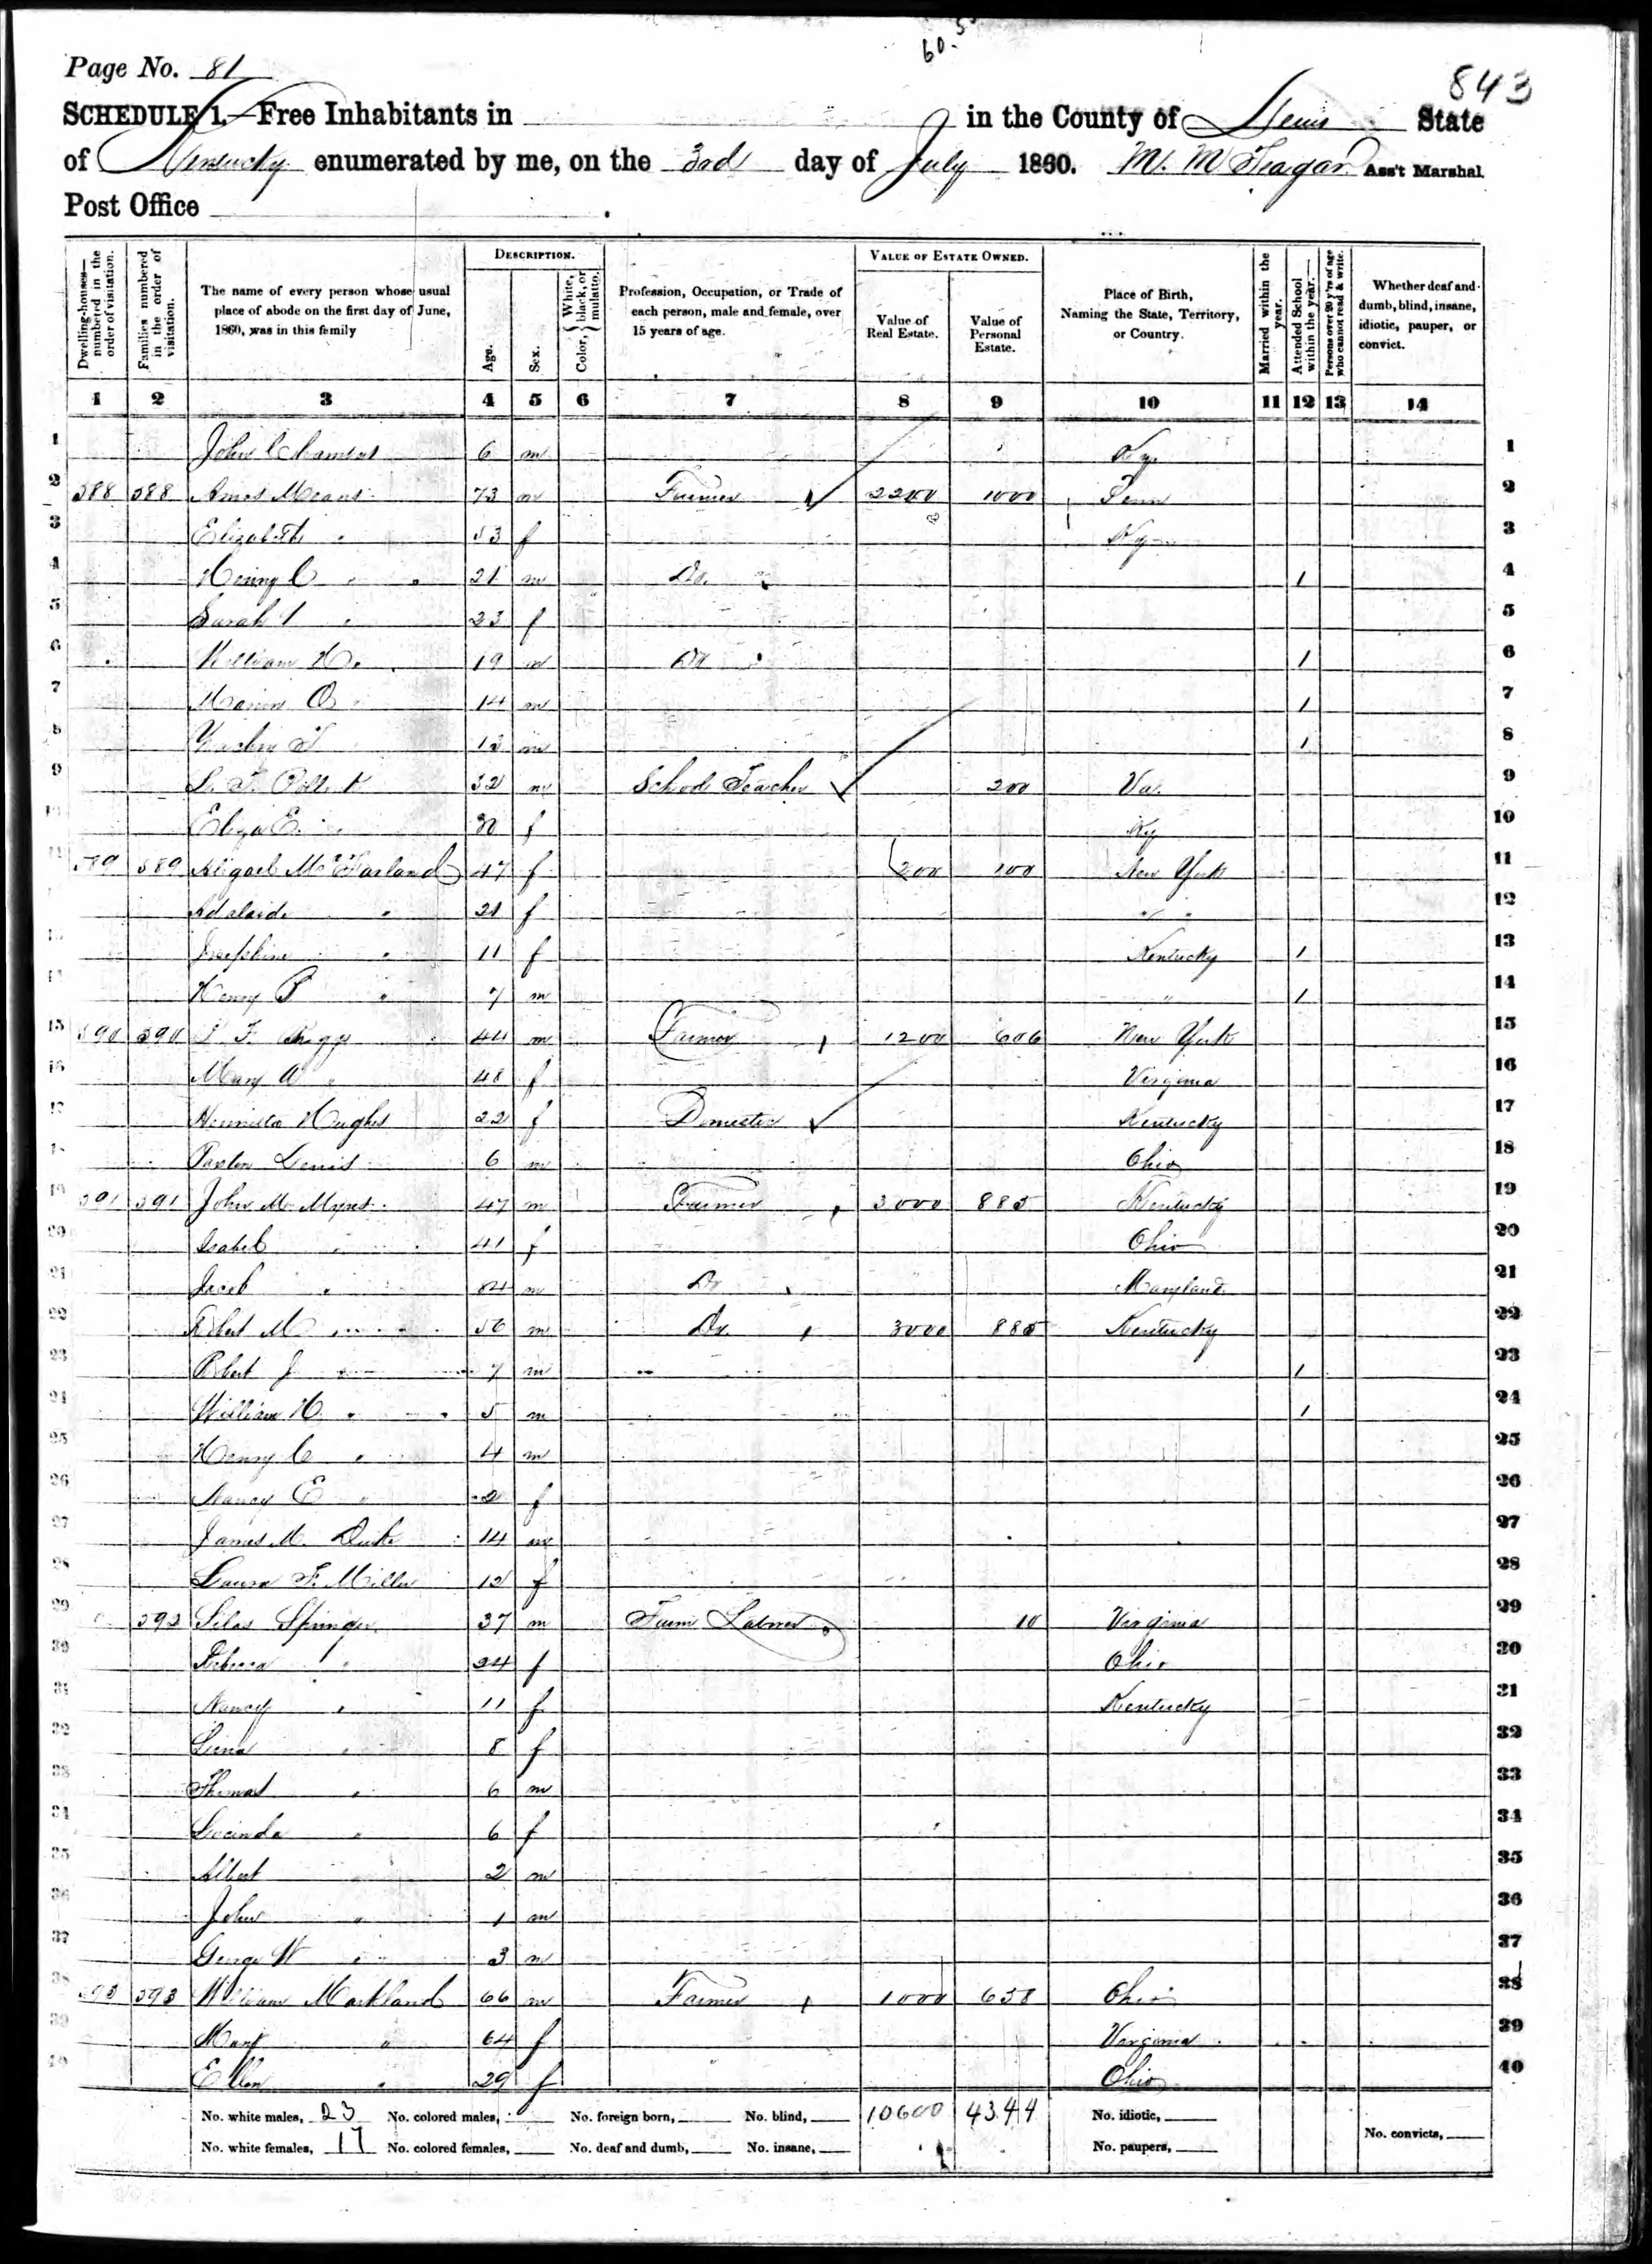 60.5
Page No. 81
843
SCHEDULE 1.—Free Inhabitants in in the County of Lewis State
of Kentucky enumerated by me, on the 3rd day of July 1860. Ass't Marshal.
Post Office
Dwelling-houses—numbered in the order of visitation.
Families numbered in the order of visitation.
The name of every person whose usual place of abode on the first day of June, 1860, was in this family
DESCRIPTION.
Age.
Sex.
Color, { White, black, or mulatto.
Profession, Occupation, or Trade of each person, male and female, over 15 years of age.
VALUE OF ESTATE OWNED.
Value of Real Estate.
Value of Personal Estate.
Place of Birth, Naming the State, Territory, or Country.
Married within the year.
Attended School within the year.
Persons over 20 y'rs of age who cannot read & write.
Whether deaf and dumb, blind, insane, idiotic, pauper, or convict.
1 2 3 4 5 6 7 8 9 10 11 12 13 14
1 John 6 m Ky. 1
2 388 388 Amos Means 73 m Farmer 2200 1000 Penn 2
3 Elizabeth " 53 f Ky 3
4 Henry C " 21 m Do. 1 4
5 Sarah " 23 f 5
6 William H. 19 m Do 1 6
7 O " 14 m 1 7
8 m 1 8
9 32 m School Teacher 200 Va. 9
10 Eliza E. " 30 f Ky 10
11 389 389 Abigael McFarland 47 f 200 100 New York 11
12 Adelaide " 21 f " " 12
13 Josephine " 11 f Kentucky 1 13
14 Henry P " 7 m " 1 14
15 390 390 44 m Farmer 1200 606 New York 15
16 Mary A " 48 f Virginia 16
17 Hughes 22 f Domestic Kentucky 17
18 Lewis 6 m Ohio 18
19 391 391 John M. 47 m Farmer 3000 885 Kentucky 19
20 Isabel " 41 f Ohio 20
21 Jacob " 84 m Do Maryland 21
22 Robert M " 56 m Do. 3000 885 Kentucky 22
23 Robert J " 7 m 1 23
24 William H. " 5 m 1 24
25 Henry C " 4 m 25
26 Nancy E " 2 f 26
27 James M. Duke 14 m 27
28 Laura F. Miller 12 f 28
29 392 Silas Springer 37 m Farm Laborer 10 Virginia 29
30 Rebecca " 24 f Ohio 30
31 Nancy " 11 f Kentucky 31
32 " 8 f 32
33 Thomas " 6 m 33
34 Lucinda " 6 f 34
35 Albert 2 m 35
36 John " 1 m 36
37 George W " 3 m 37
38 393 393 William Markland 66 m Farmer 1000 658 Ohio 38
39 Mary " 64 f Virginia 39
40 Ellen " 29 f Ohio 40
No. white males, 23 No. colored males, No. foreign born, No. blind, 10600 4344 No. idiotic,
No. white females, 17 No. colored females, No. deaf and dumb, No. insane, No. paupers, No. convicts,